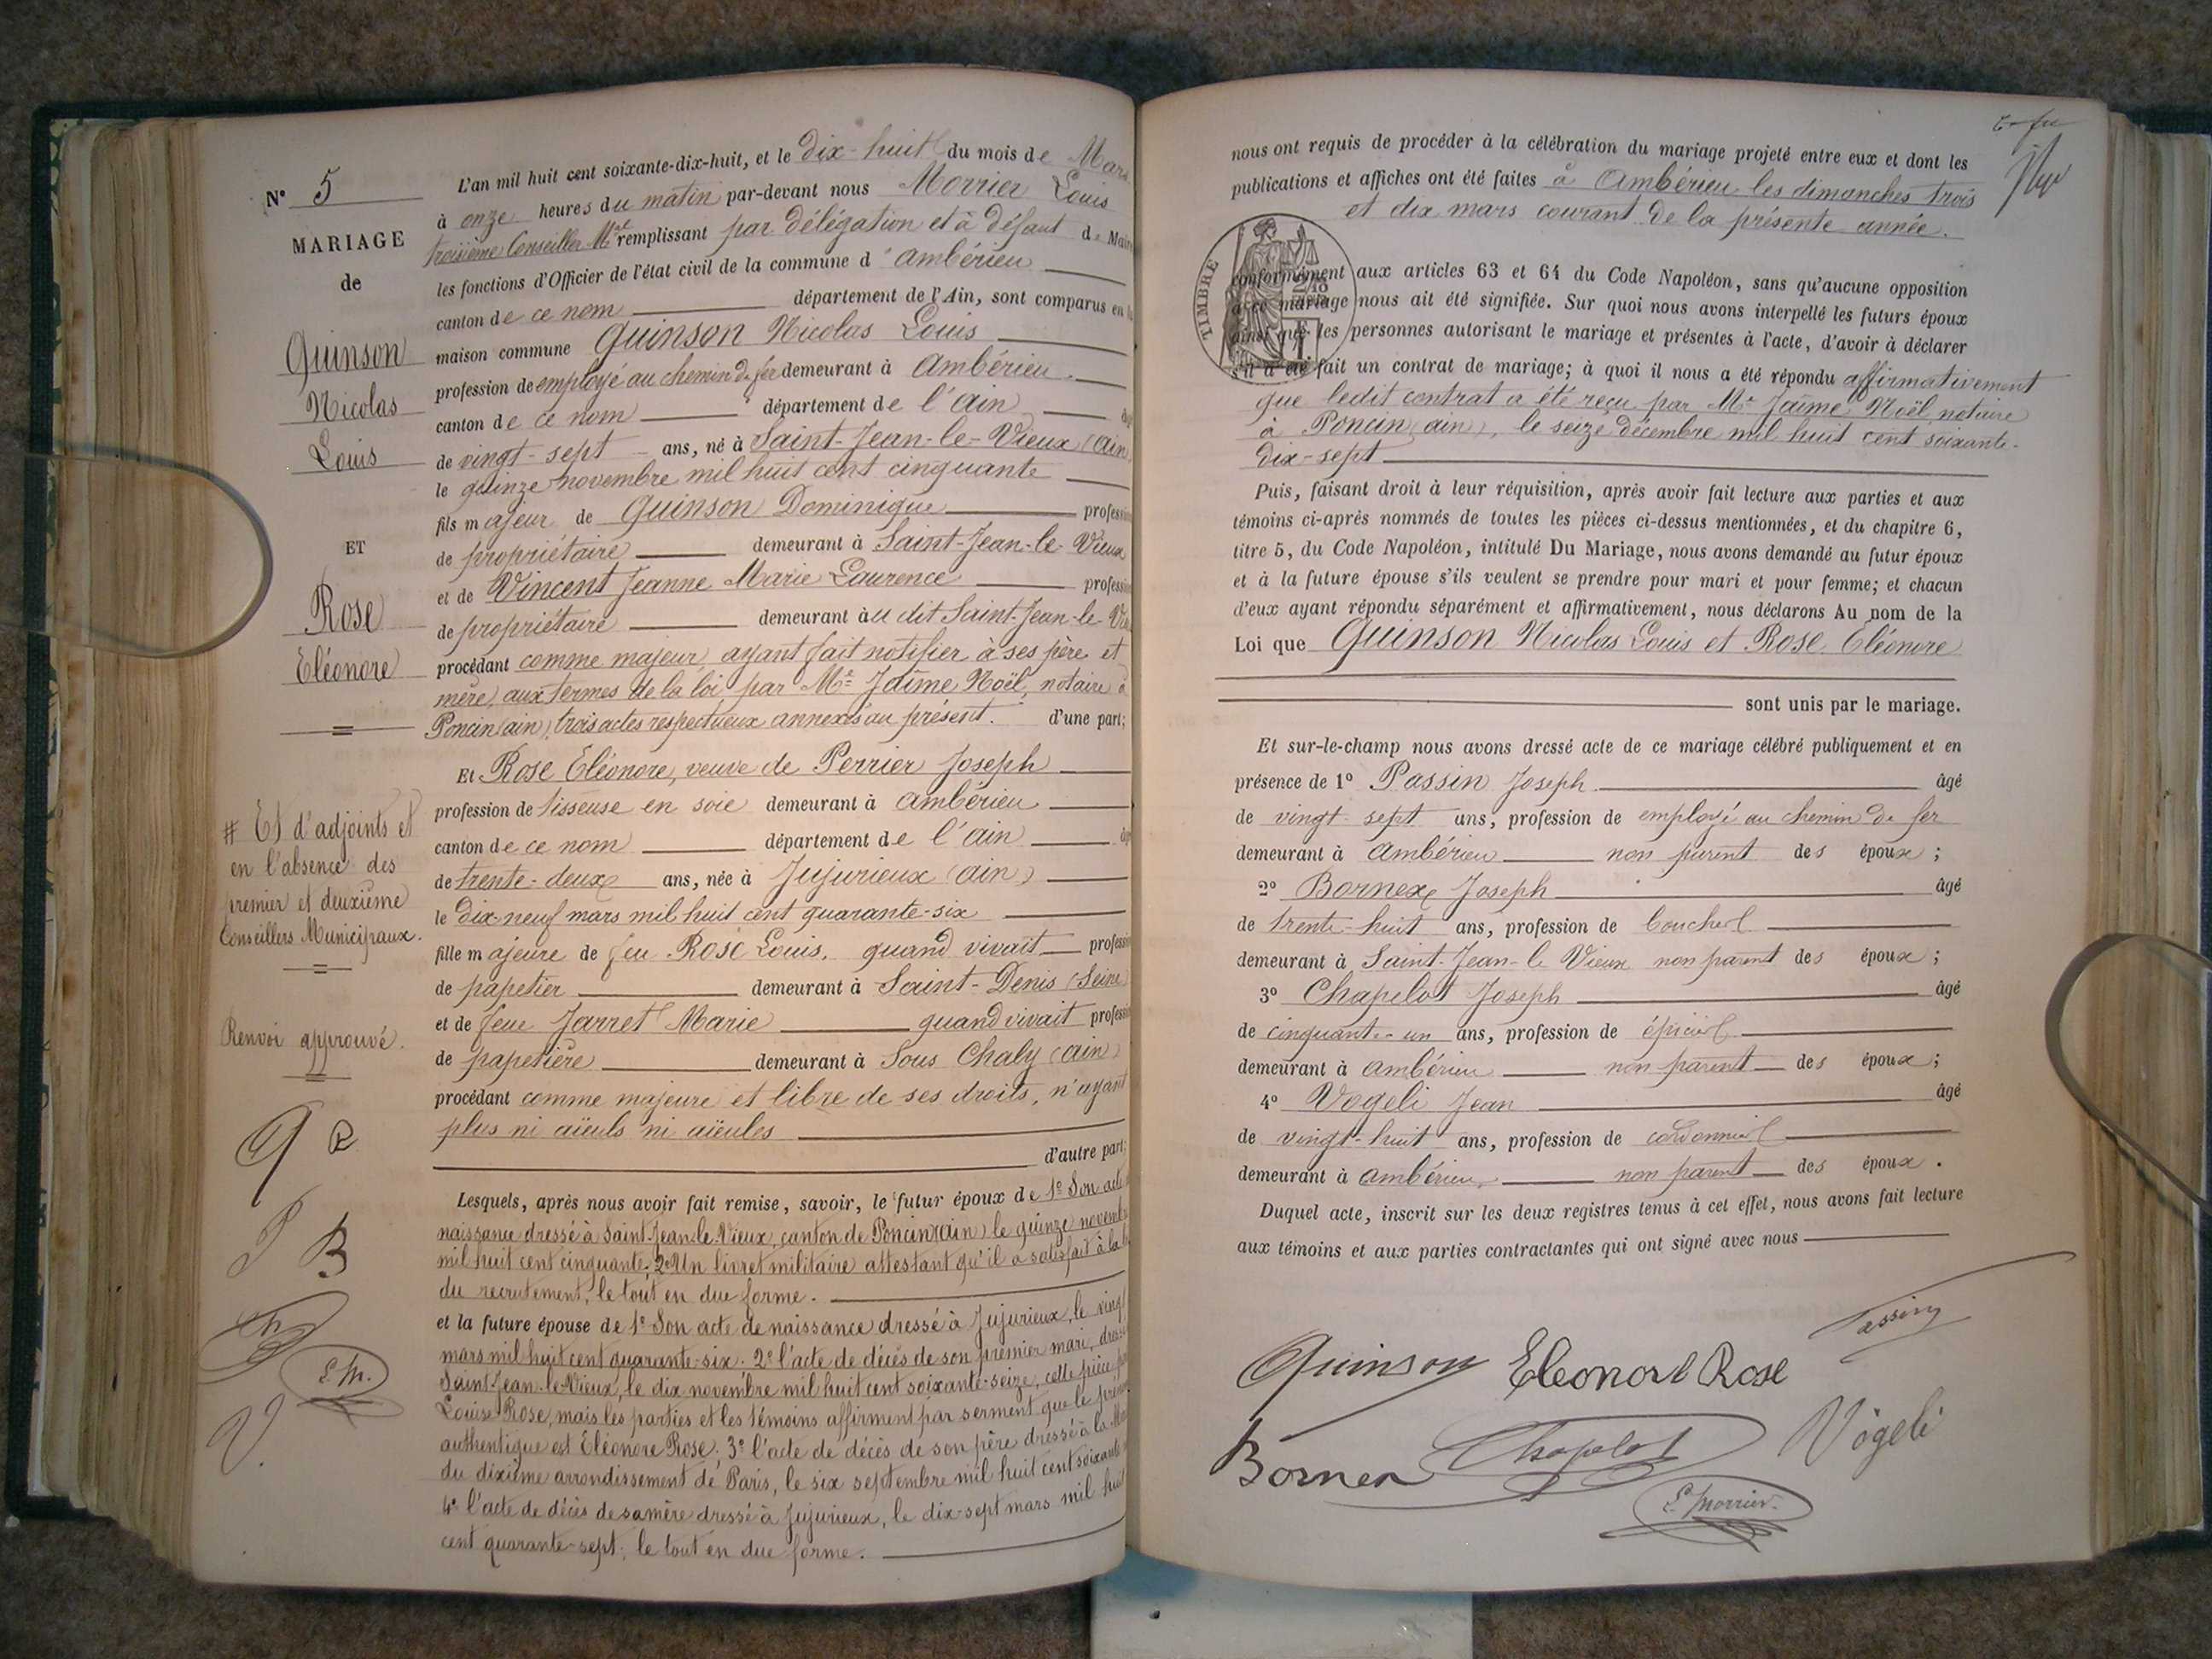 N° 5
MARIAGE
de
Quinson
Nicolas
Louis
ET
Rose
Eléonore
# Et d'adjoints et
en l'absence des
premier et deuxième
Conseillers Municipaux.
Renvoi approuvé.
Q R
P B
Ch
L. M.
V.
L'an mil huit cent soixante-dix-huit, et le dix-huit du mois de Mars
à onze heures du matin par-devant nous Morrier Louis
troisième Conseiller Mal remplissant par délégation et à défaut de Maire
les fonctions d'Officier de l'état civil de la commune d'Ambérieu
canton de ce nom département de l'Ain, sont comparus en la
maison commune Quinson Nicolas Louis
profession de employé au chemin de fer demeurant à Ambérieu
canton de ce nom département de l'Ain
de vingt-sept ans, né à Saint-Jean-le-Vieux (Ain)
le quinze novembre mil huit cent cinquante
fils majeur de Quinson Dominique profession
de propriétaire demeurant à Saint-Jean-le-Vieux
et de Vincent Jeanne Marie Laurence profession
de propriétaire demeurant àu dit Saint-Jean-le-Vie
procédant comme majeur, ayant fait notifier à ses père et
mère, aux termes de la loi par Me Jaime Noël, notaire à
Poncin (ain), trois actes respectueux annexés au présent. d'une part;
Et Rose Eléonore, veuve de Perrier Joseph
profession de tisseuse en soie demeurant à Ambérieu
canton de ce nom département de l'ain
de trente-deux ans, née à Jujurieux (ain)
le dix-neuf mars mil huit cent quarante-six
fille majeure de feu Rose Louis, quand vivait profession
de papetier demeurant à Saint-Denis (Seine)
et de feue Jarret Marie quand vivait profession
de papetière demeurant à Sous Chaly (ain)
procédant comme majeure et libre de ses droits, n'ayant
plus ni aïeuls ni aïeules
d'autre part;
Lesquels, après nous avoir fait remise, savoir, le futur époux de 1° Son acte
naissance dressé à Saint-Jean-le-Vieux, canton de Poncin (ain) le quinze novembre
mil huit cent cinquante; 2° Un livret militaire attestant qu'il a satisfait à la
du recrutement, le tout en due forme.
et la future épouse de 1° Son acte de naissance dressé à Jujurieux, le vingt
mars mil huit cent quarante-six. 2° l'acte de décès de son premier mari, dressé
Saint-Jean-le-Vieux, le dix novembre mil huit cent soixante-seize, cette pièce
Louise Rose, mais les parties et les témoins affirment par serment que le prénom
authentique est Eléonore Rose; 3° l'acte de décès de son père dressé à la
du dixième arrondissement de Paris, le six septembre mil huit cent soixante
4° l'acte de décès de sa mère dressé à Jujurieux, le dix-sept mars mil huit
cent quarante-sept; le tout en due forme.
nous ont requis de procéder à la célébration du mariage projeté entre eux et dont les
publications et affiches ont été faites à Ambérieu les dimanches trois
et dix mars courant de la présente année.
TIMBRE
conformément aux articles 63 et 64 du Code Napoléon, sans qu'aucune opposition
à ce mariage nous ait été signifiée. Sur quoi nous avons interpellé les futurs époux
ainsi que les personnes autorisant le mariage et présentes à l'acte, d'avoir à déclarer
s'il a été fait un contrat de mariage; à quoi il nous a été répondu affirmativement
que ledit contrat a été reçu par Me Jaime Noël, notaire
à Poncin (ain), le seize décembre mil huit cent soixante-
dix-sept
Puis, faisant droit à leur réquisition, après avoir fait lecture aux parties et aux
témoins ci-après nommés de toutes les pièces ci-dessus mentionnées, et du chapitre 6,
titre 5, du Code Napoléon, intitulé Du Mariage, nous avons demandé au futur époux
et à la future épouse s'ils veulent se prendre pour mari et pour femme; et chacun
d'eux ayant répondu séparément et affirmativement, nous déclarons Au nom de la
Loi que Quinson Nicolas Louis et Rose Eléonore
sont unis par le mariage.
Et sur-le-champ nous avons dressé acte de ce mariage célébré publiquement et en
présence de 1° Passin Joseph âgé
de vingt-sept ans, profession de employé au chemin de fer
demeurant à Ambérieu non parent des époux;
2° Bornex Joseph âgé
de trente-huit ans, profession de boucher
demeurant à Saint-Jean-le Vieux non parent des époux;
3° Chapelot Joseph âgé
de cinquante-un ans, profession de épicier
demeurant à Ambérieu non parent des époux;
4° Vogeli Jean âgé
de vingt-huit ans, profession de cordonnier
demeurant à Ambérieu, non parent des époux.
Duquel acte, inscrit sur les deux registres tenus à cet effet, nous avons fait lecture
aux témoins et aux parties contractantes qui ont signé avec nous
Passin
Quinson Eleonore Rose
Bornex Chapelot Vögeli
L. Morrier